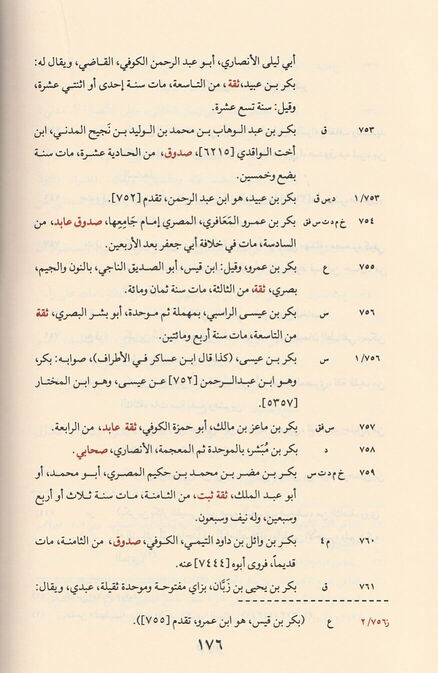 أبي ليلى الأنصاري، أبو عبد الرحمن الكوفي، القاضي، ويقال له:
بكر بن عبيد، ثقة، من التاسعة، مات سنة إحدى أو اثنتي عشرة،
وقيل: سنة تسع عشرة.
٧٥٣ ق بكر بن عبد الوهاب بن محمد بن الوليد بن نَجيح المدني، ابن
أخت الواقدي [٦٢١٥]، صدوق، من الحادية عشرة، مات سنة
بضع وخمسين.
١/٧٥٣ د س ق بكر بن عبيد، هو ابن عبد الرحمن، تقدم [٧٥٢].
٧٥٤ خ م د ت س فق بكر بن عمرو المَعَافري، المصري إمام جَامِعِها، صدوق عابد، من
السادسة، مات في خلافة أبي جعفر بعد الأربعين.
٧٥٥ ع بكر بن عمرو، وقيل: ابن قيس، أبو الصديق الناجي، بالنون والجيم،
بصري، ثقة، من الثالثة، مات سنة ثمان ومائة.
٧٥٦ س بكر بن عيسى الراسبي، بمهملة ثم موحدة، أبو بشر البصري، ثقة
من التاسعة، مات سنة أربع ومائتين.
١/٧٥٦ س بكر بن عيسى، (كذا قال ابن عساكر في الأطراف)، صوابه: بكر،
وهو ابن عبدالرحمن [٧٥٢] عن عيسى، وهو ابن المختار
[٥٣٥٧].
٧٥٧ س فق بكر بن ماعز بن مالك، أبو حمزة الكوفي، ثقة عابد، من الرابعة.
٧٥٨ د بكر بن مُبَشر، بالموحدة ثم المعجمة، الأنصاري، صحابي.
٧٥٩ خ م د ت س بكر بن مضر بن محمد بن حكيم المصري، أبو محمد، أو
أبو عبد الملك، ثقة ثبت، من الثامنة، مات سنة ثلاث أو أربع
وسبعين، وله نيف وسبعون.
٧٦٠ م ٤ بكر بن وائل بن داود التيمي، الكوفي، صدوق، من الثامنة، مات
قديماً، فروى أبوه [٧٤٤٤] عنه.
٧٦١ ق بكر بن يحيى بن زَبَّان، بزاي مفتوحة وموحدة ثقيلة، عبدي، ويقال:
ز٢/٧٥٦ ع (بكر بن قيس، هو ابن عمرو، تقدم [٧٥٥]).
١٧٦